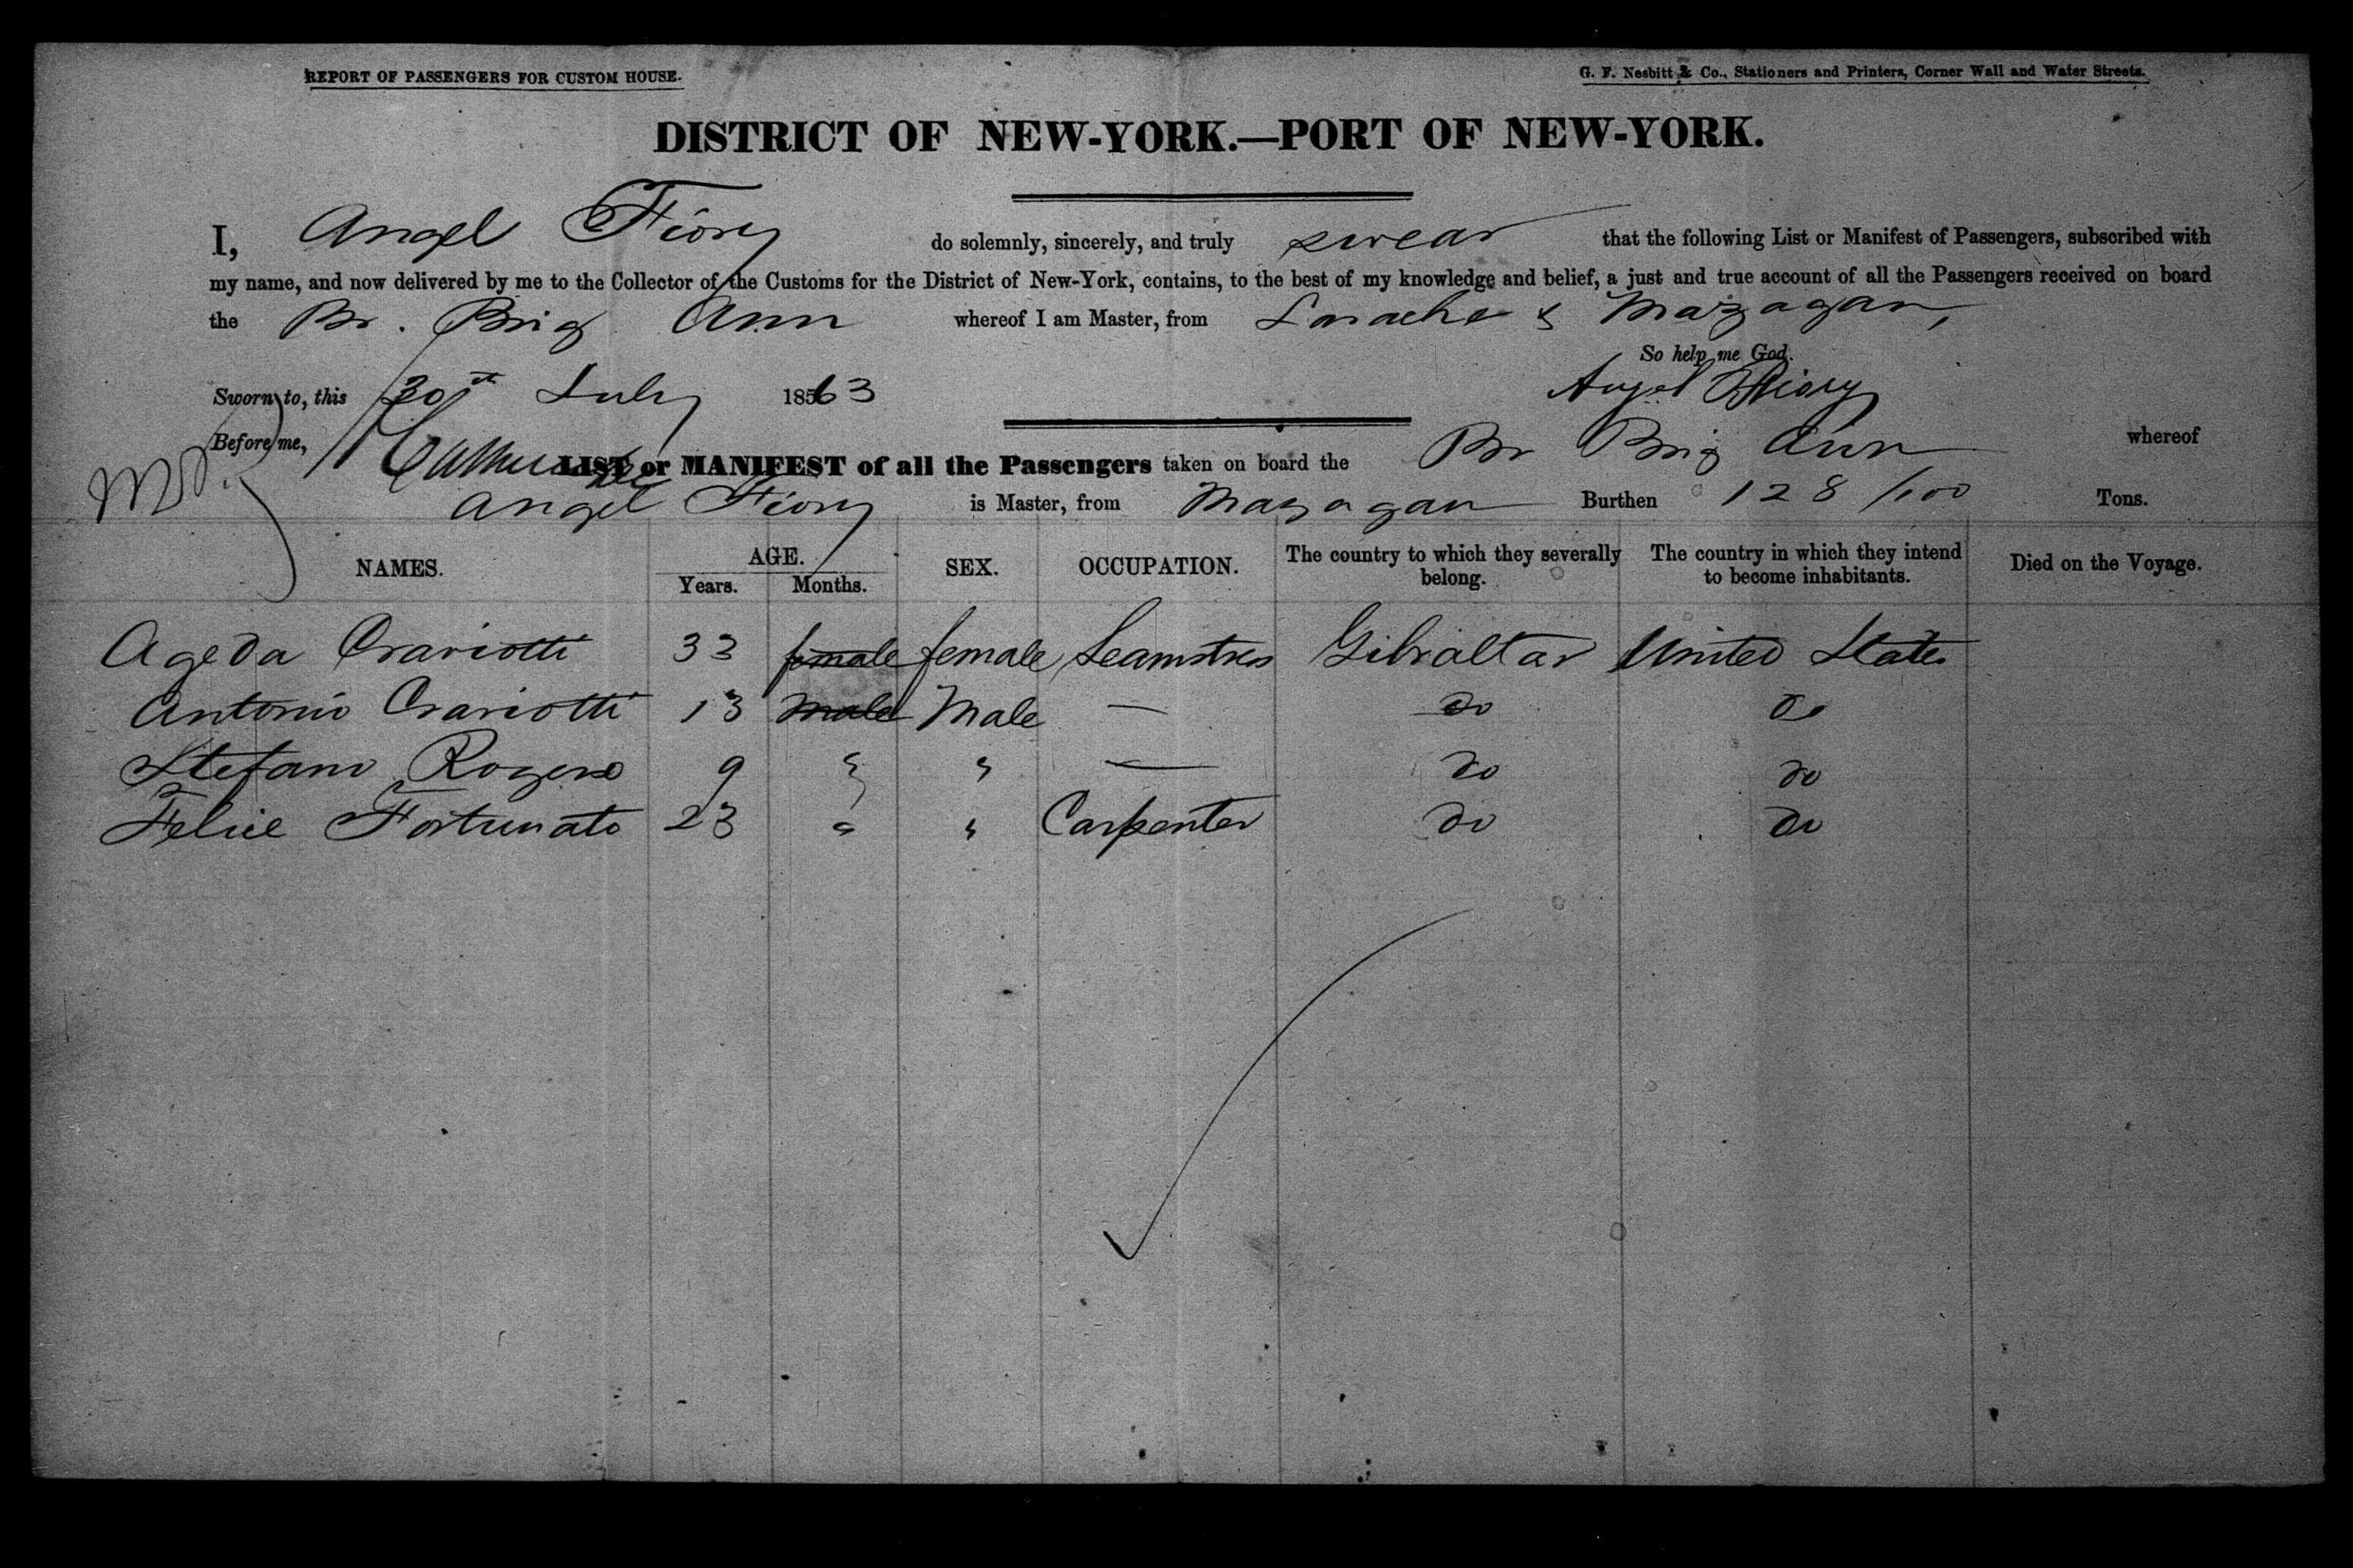 REPORT OF PASSENGERS FOR CUSTOM HOUSE.
G. F. Nesbitt & Co., Stationers and Printers, Corner Wall and Water Streets.
DISTRICT OF NEW-YORK.—PORT OF NEW-YORK.
I, Angel Fiory do solemnly, sincerely, and truly swear that the following List or Manifest of Passengers, subscribed with
my name, and now delivered by me to the Collector of the Customs for the District of New-York, contains, to the best of my knowledge and belief, a just and true account of all the Passengers received on board
the Br. Brig Ann whereof I am Master, from Larache & Mazagan,
So help me God.
Sworn to, this 30th July 1863 Angel Fiory
Before me,
LIST or MANIFEST of all the Passengers taken on board the Br Brig Ann whereof
Angel Fiory is Master, from Mazagan Burthen 128/100 Tons.
NAMES. AGE. Years. Months. SEX. OCCUPATION. The country to which they severally belong. The country in which they intend to become inhabitants. Died on the Voyage.
Ageda Craviotti 33 female female Seamstress Gibraltar United States
Antonio Craviotti 13 male Male — do do
Stefano Rogero 9 " " — do do
Felice Fortunato 23 " " Carpenter do do